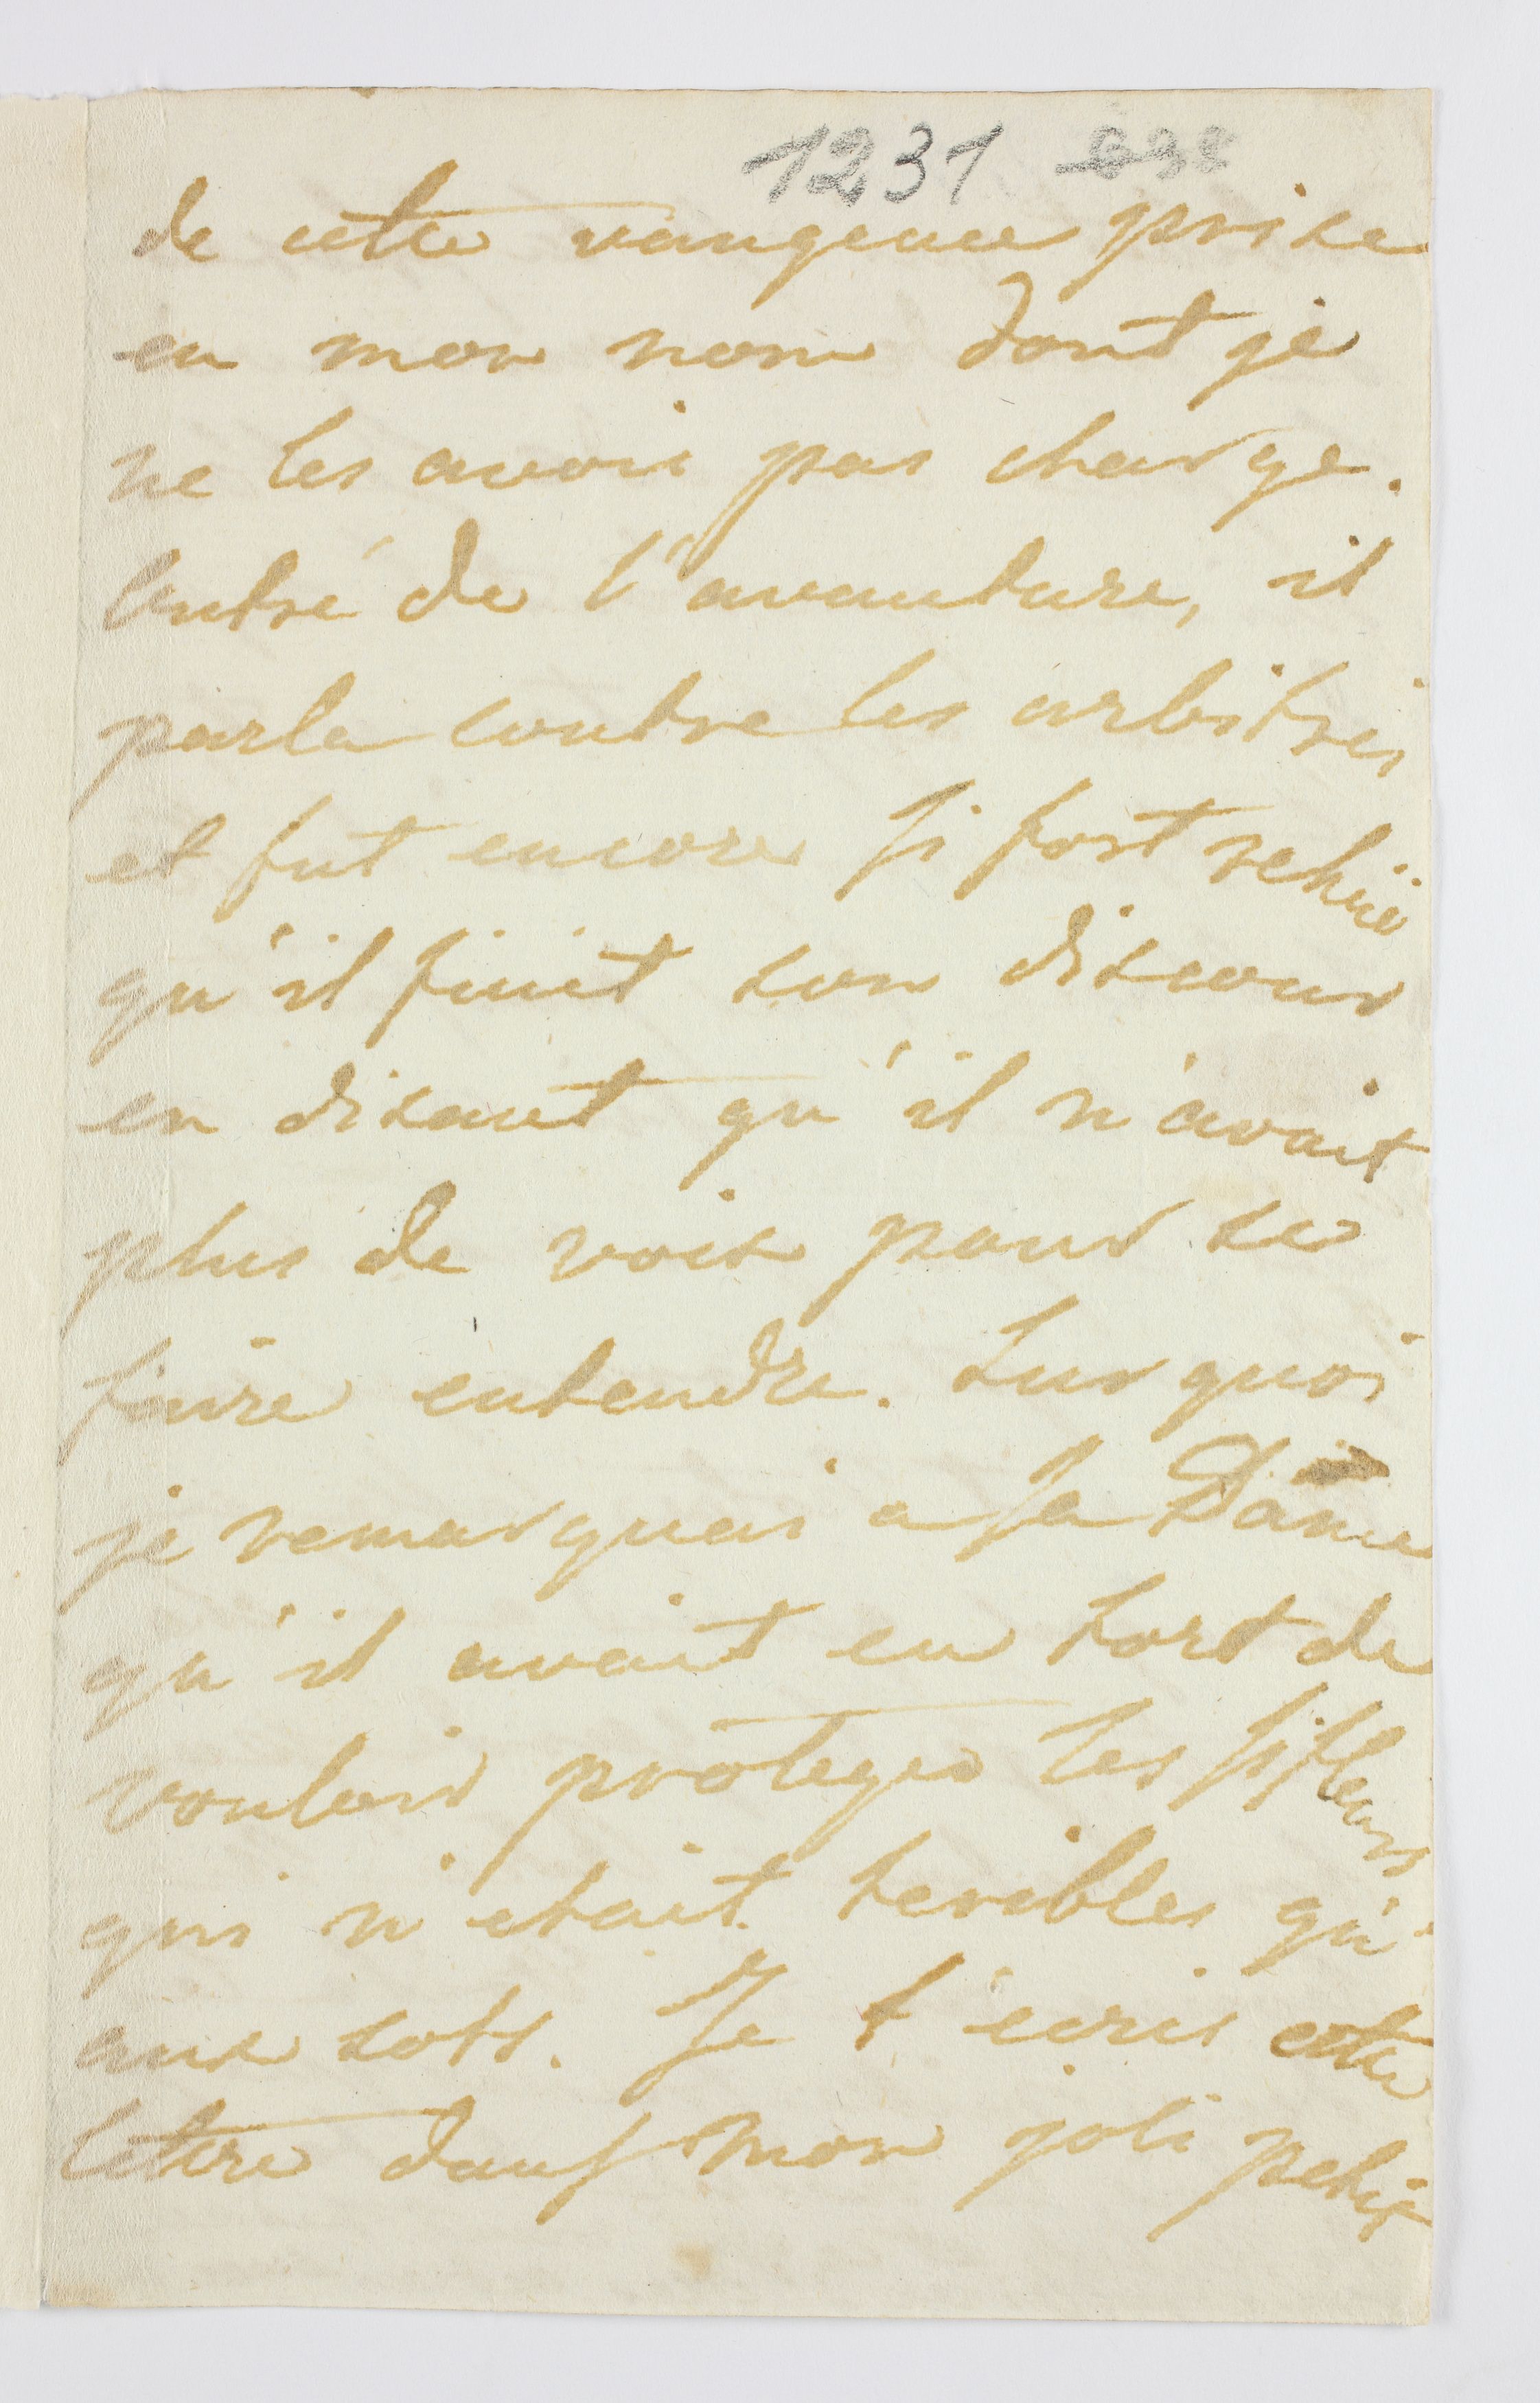 1231 838
de cette vangence prise
en mon nom dont je
ne les avoir pas charge.
Outré de l'avanture, il
parla contre les arbitres
et fut encore si fort
qu'il finit son discour
en disant qu'il n'avait
plus de voix pour se
faire entendre. Sur quoi
je remarquai a sa Dame
qu'il avait eu tort de
vouloir proteger les sifleurs
qui n'etait terribles qu'
aux sots. Je t'ecris cette
lettre dans mon joli petit